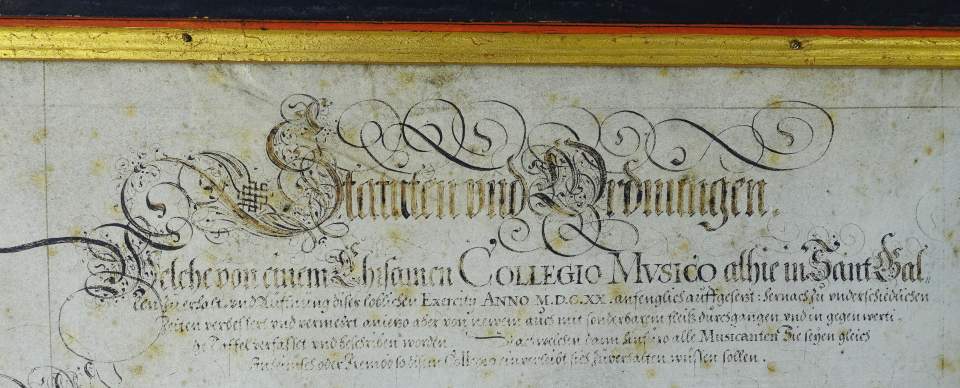 Statuten und Ordnungen.
Welche von einem Ehrsamen COLLEGIO MVSICO alhie in Sant Gal-
len zu erhalt- und Auffnung diser loblichen Exercity ANNO M.D.C.XX. anfenglich auffgesetzt: hernach zu underschiedlichen
Zeiten verbessert und vermehrt anietzo aber von newem auch mit sonderbarem fleiß durchgangen und in gegenwerti-
ge Taffel verfasset und beschriben worden. Nach welchen dann künftig alle Musicanten Sie seyen gleich
Inheimisch oder Frembd so disem Collegio einverleibt sich zuverhalten wüssen sollen.